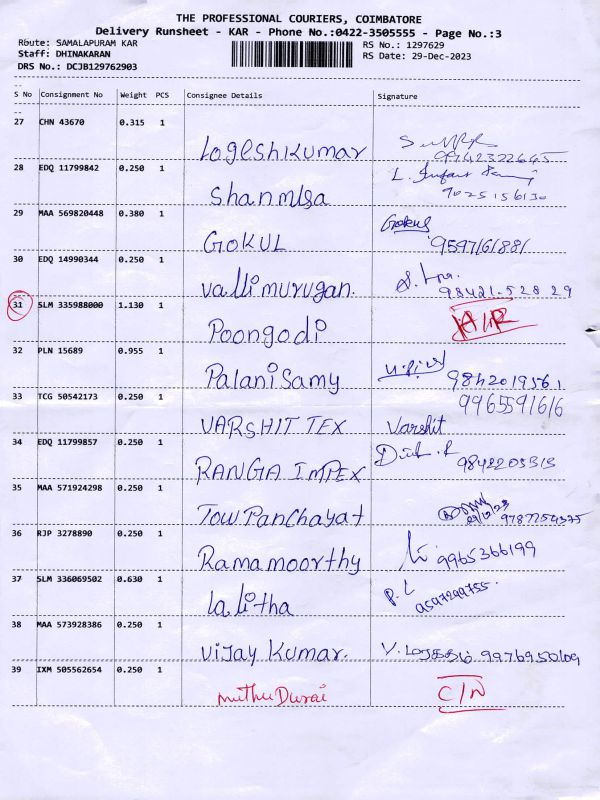 THE PROFESSIONAL COURIERS, COIMBATORE
Delivery Runsheet - KAR - Phone No.:0422-3505555 - Page No.:3
Route: SAMALAPURAM KAR RS No.: 1297629
Staff: DHINAKARAN RS Date: 29-Dec-2023
DRS No.: DCJB129762903
S No Consignment No Weight PCS Consignee Details Signature
27 CHN 43670 0.315 1
Logeshkumar
28 EDQ 11799842 0.250 1
Shanmuga 9025156130
29 MAA 569820448 0.380 1 Gokul
GOKUL 9597161881
30 EDQ 14990344 0.250 1
Vallimurugan. 98421-52829
31 SLM 335988000 1.130 1
Poongodi
32 PLN 15689 0.955 1
PalaniSamy 9842019561
33 TCG 50542173 0.250 1 9965591616
VARSHIT TEX Varshit
34 EDQ 11799857 0.250 1
RANGA IMPEX 9842205313
35 MAA 571924298 0.250 1
Tow Panchayat 29/12/23
36 RJP 3278890 0.250 1
Ramamoorthy 9965366199
37 SLM 336069502 0.630 1 P. L
Lalitha 9597299755
38 MAA 573928386 0.250 1
Vijay Kumar. 9976950109
39 IXM 505562654 0.250 1
muthu Durai C/N